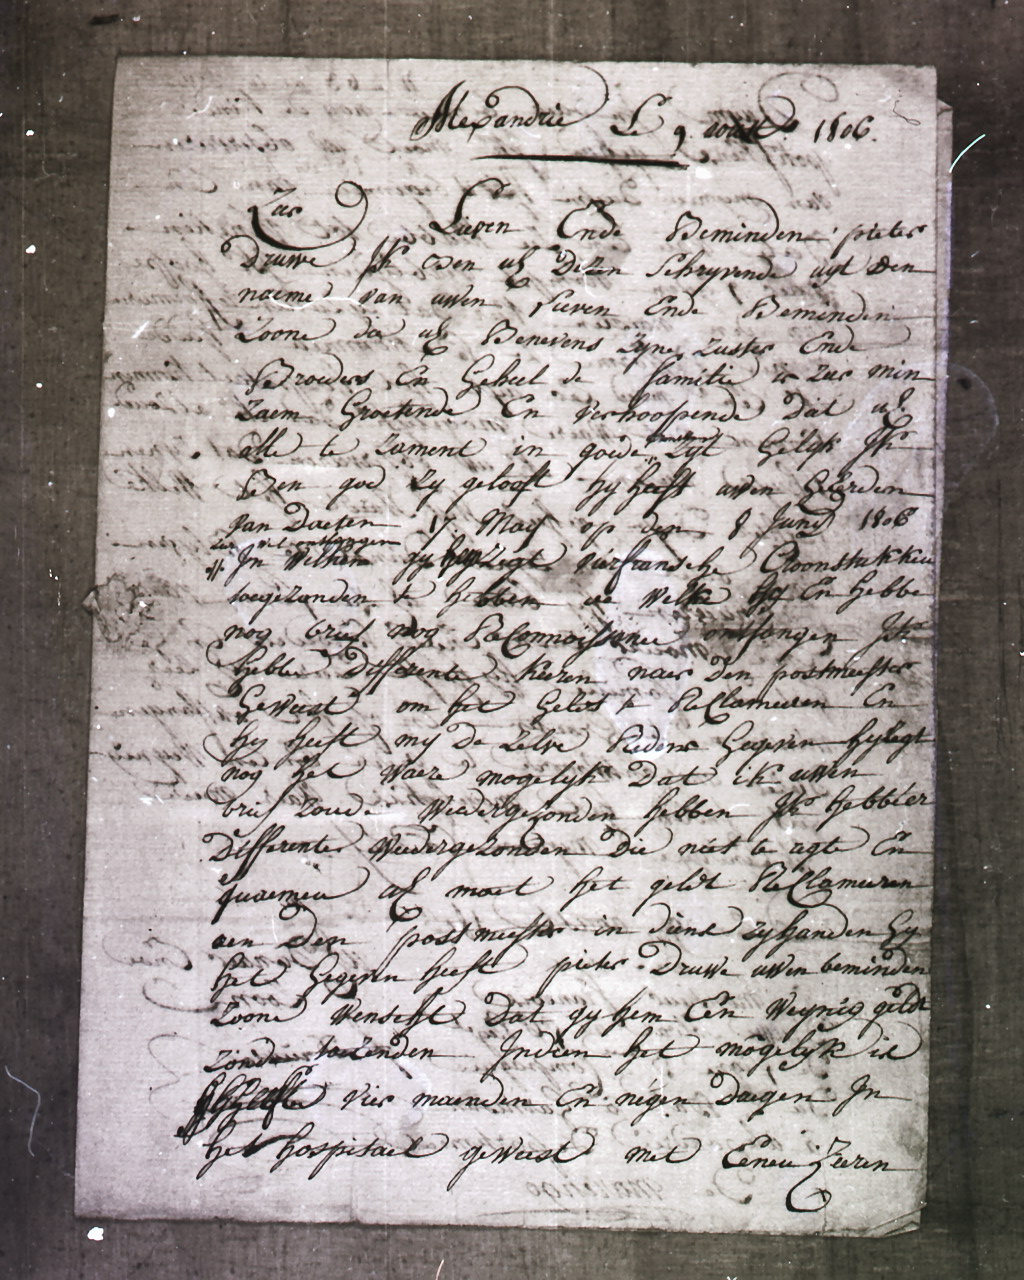 Alexandrie Le 9 aoust 1806.
Zeer Lieven Ende Beminden pieter
Druwe Ik Ben ul Dezen schryvende uyt Den
naeme van uwen Lieven Ende Beminden
Zoone die ul Benevens Zyne Zuster Ende
Broeders En Geheel de familie is zeer min
zaem Groetende En verhoopende Dat ul
alle te zament in goede zyt Gelyk Ik
Ben god zy gelooft hy heeft uwen Geerden
van Daeten 17 Mey op den 8 Juny 1806
wel ontfangen
In Welken gy hem Zegt vier fransche Croonstukken
toegezonden te hebben de Welke hy En hebbe
nog brief nog ReConnoissance ontfangen Ik
hebbe Differente Keeren naer Den postmeester
Geweest om het Geldt te ReClameeren En
hy heeft my De Zelve Redens Gegeven hy Zegt
nog het waere mogelyk Dat ik uwen
brief Zoude Wedergezonden hebben Ik hebb'er
Differente Wedergezonden Die niet te regte En
quaemen ul moet het geldt ReClameeren
aen Den postmeester in diens zyhanden Gy
het Gegeven heeft pieter Druwe uwen beminden
Zoone Wenscht Dat gy hem Een Weynig geldt
zond toezenden Indien het mogelyk is
vier maenden En negen Daegen In
het hospitael geweest met Eenen Zeeren